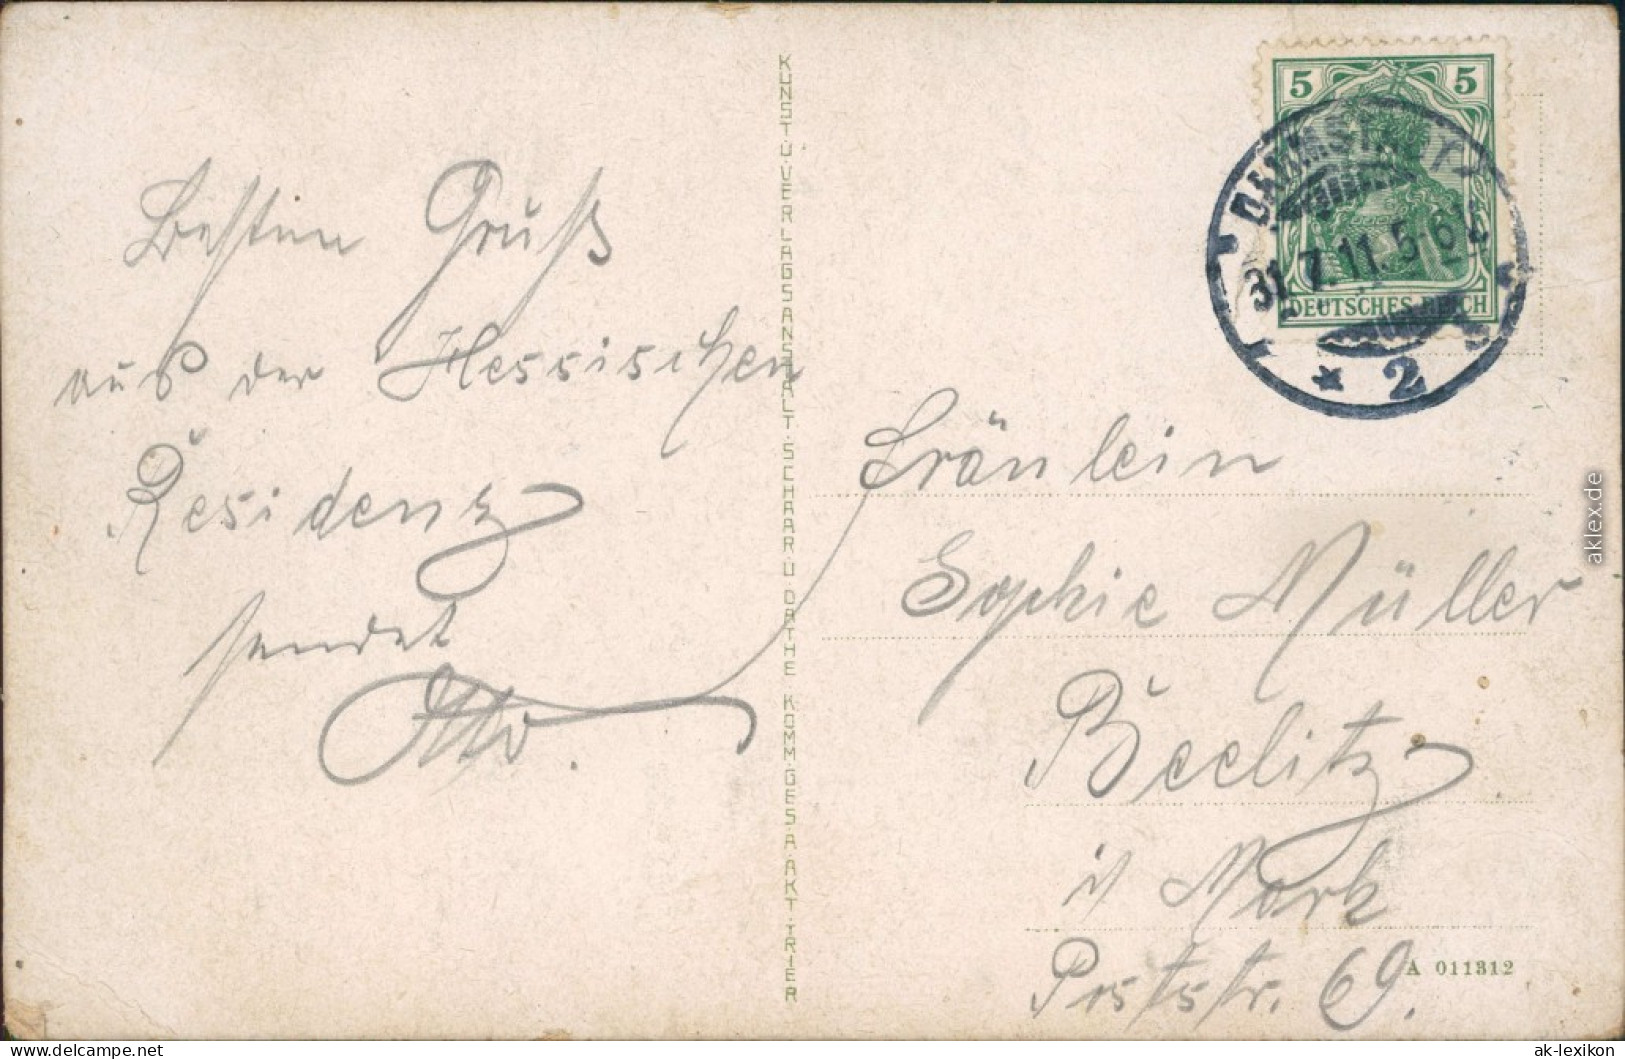 Besten Gruß
aus der Hessischen
Residenz
sendet
Otto.
KUNST-U-VERLAGSANSTALT-SCHAAR U. DATHE KOMM-GES-A-AKT-TRIER
5 5
DEUTSCHES REICH
DARMSTADT
31.7.11.5-6N
* 2
Fräulein
Sophie Müller
Beelitz
i/ Mark
Poststr. 69.
A 011312
aklex.de
www.delcampe.net
ak-lexikon